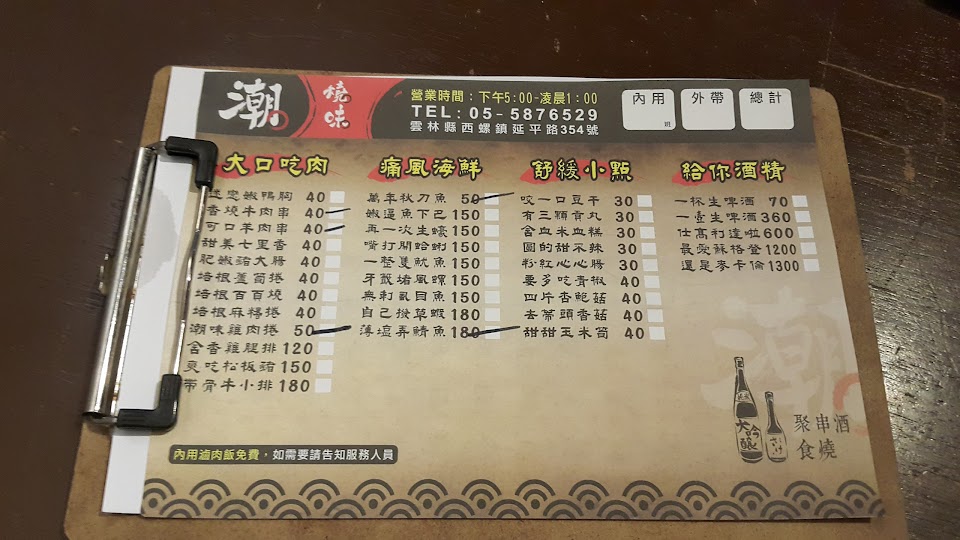 潮
燒味
營業時間：下午5:00-凌晨1:00
TEL: 05-5876529
雲林縣西螺鎮延平路354號
內用
外帶
總計
大口吃肉
迷戀嫩鴨胸 40
香燒牛肉串 40
可口羊肉串 40
甜美七里香 40
肥嫩豬大腸 40
培根蘆筍捲 40
培根百百燒 40
培根麻糬捲 40
潮味雞肉捲 50
含香雞腿排 120
爽吃松板豬 150
帶骨牛小排 180
痛風海鮮
萬年秋刀魚 50
嫩逼魚下巴 150
再一次生蠔 150
嘴打開蛤蜊 150
一整隻魷魚 150
牙籤堵風螺 150
無刺虱目魚 150
自己撥草蝦 180
薄鹽弄鯖魚 180
舒緩小點
咬一口豆干 30
有三顆貢丸 30
含血米血糕 30
圓的甜不辣 30
粉紅心心腸 30
要多吃青椒 40
四片杏鮑菇 40
去蒂頭香菇 40
甜甜玉米筍 40
給你酒精
一杯生啤酒 70
一壺生啤酒 360
仕高利達啦 600
最愛蘇格登 1200
還是麥卡倫 1300
內用滷肉飯免費，如需要請告知服務人員
大吟釀
聚串酒
食燒